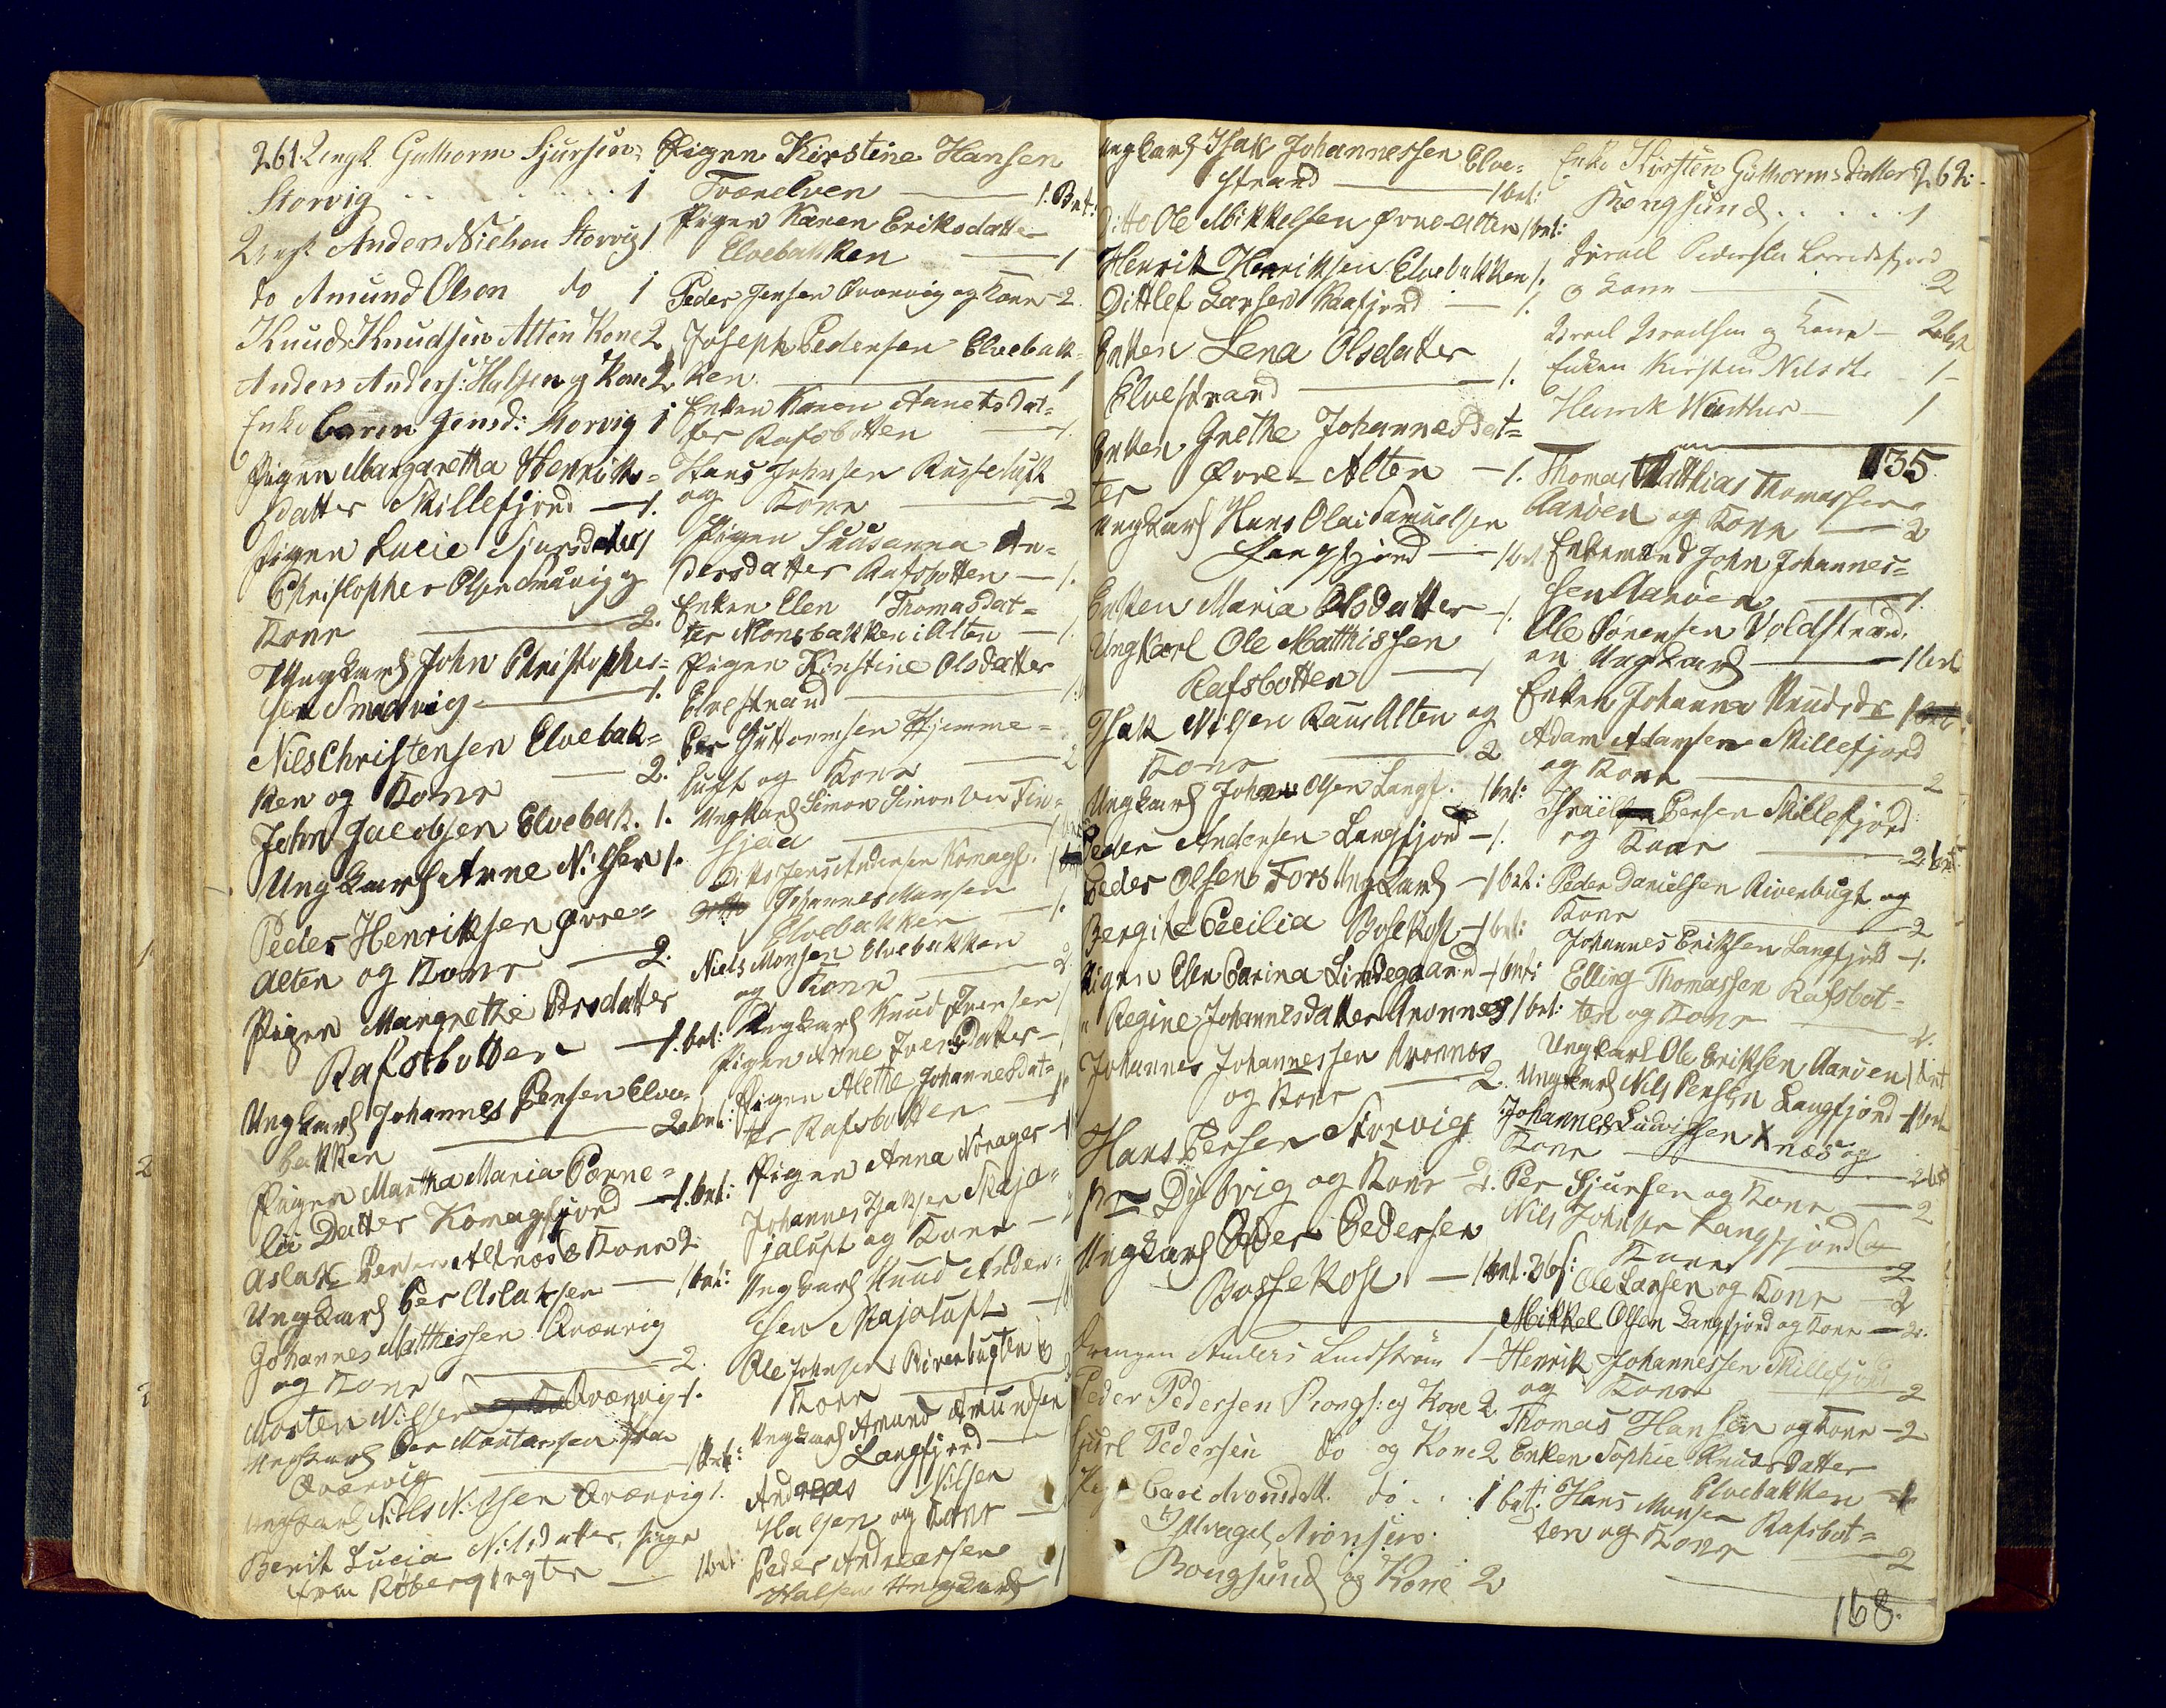 261. Ungk. Guttorm Sjursen
Storvig . . . . . . . 1
Ungk. Anders Nielsen Storvig 1
do Amund Olsen do 1
Knud Knudsen Alten Kone 2
Anders Anders: Halsen og Kone 2
Enke Caren Jensd: Storvig 1
Pigen Margaretha Henriks=
datter Skillefjord — 1.
Pigen Lucie Sjursdatter 1
Christopher Olsen Smavig og
Kone — 2.
Ungkarl John Christopher=
sen Smavig — 1.
Nils Christensen Elvebak=
ken og Kone — 2.
John Jacobsen Elvebak. 1.
Ungkarl Arne Nilsen 1.
Peder Henriksen Øvre=
Alten og Kone — 2.
Pigen Margrethe Persdatter
Rafsbotten — 1. bnt:
Ungkarl Johannes Persen Elve=
bakken — 2 bnt:
Pigen Martha Maria Corne=
lii Datter Komagfjord — 1. bnt:
Aslak Persen Altnæs & Kone 2
Ungkarl Per Aslaksen — 1 bnt:
Johannes Matthissen Qvænvig
og Kone — 2.
Morten Nilsen Qvænvig 1.
Ungkarl Per Mortensen fra
Qvænvig — 1 bnt:
Ungkarl Niels Nilsen Qvænvig 1.
Berit Lucia Nilsdatter, Pige
fra — 1 bnt:
Pigen Kirstine Hansen
Tværelven — 1. Bnt:
Pigen Karen Eriksdatter
Elvebakken — 1
Peder Jensen Qvænvig og Kone — 2
Joseph Pedersen Elvebak=
ken — 1
Enken Karen Danets Dat=
ter Rafsbotten — 1.
Hans Johnsen Russeluft
og Kone — 2
Pigen Susanna An=
dersdatter Rafsbotten — 1.
Enken Elen Thomasdat=
ter Monsbakken i Alten — 1.
Pigen Kirstine Olsdatter
Elvestrand — 1.
Per Guttormsen Hjemme=
luft og Kone — 2
Ungkarl Simon Simonsen Tin=
Ditto Jens Andersen Komagf. 1
Johannes Monsen
Elvebakken — 1.
Niels Monsen Elvebakken
og Kone — 2
Ungkarl Knud Iversen
Pigen Anne Iversdatter —
Pigen Alethe Johannesdat=
ter Rafsbotten — 1
Pigen Anna Norager — 1
Johannes Isaksen Skajo=
jaluft og Kone —
Ungkarl Knud Ander=
sen Skajoluft —
Ole Johnsen Rivenbugten &
Kone
Ungkarl Amund Amundsen
Langfjord —
Andreas Nilsen
Halsen og Kone —
Peder Andreassen
Halsen Ungkarl 1
Ungkarl Isak Johannessen Elve=
strand — 1 bnt:
Ditto Ole Mikkelsen Øvre-Alten 1 bnt:
Henrik Henriksen Elvebakken 1.
Dittlef Larsen Kaafjord — 1.
Enken Lena Olsdatter
Elvestrand — 1.
Enken Grethe Johannesdat=
ter Øvre-Alten — 1.
Ungkarl Hans Olai Samuelsen
Langfjord — 1 bnt.
Enken Maria Olsdatter — 1.
Ungkarl Ole Matthissen
Rafsbotten — 1
Isak Nilsen Raus Alten og
Kone — 2
Ungkarl Johan Olsen Langf. 1 bnt:
Peder Andersen Langfjord — 1.
Peder Olsen Fors Ungkarl — 1 bnt:
Bergite Cecilia Bosekop — 1 bnt:
Pigen Elen Carina Lindegaard — 1 bnt:
Regine Johannesdatter Aronnes 1 bnt:
Johannes Johannessen Aronnes
og Kone — 2.
Hans Persen Storvig
Dybvig og Kone 2.
Ungkarl Peder Pedersen
Bossekop — 1 bnt.
Drengen Anders Lindstrøm 1
Peder Pedersen Kongs: og Kone 2
Sjurl Pedersen do og Kone 2
Cari Aronsdatt. do . . 1 bnt:
Aronsen
Kongsund og Kone 2
Enke Kirsten Guthormsdatter 262.
Kongsund . . . . 1
Israel Pedersen
& Kone — 2
Israel Israelsen og Kone — 2
Enken Kirsten Nilsdt. 1
Henrik Winther — 1
135
Thomas Matthias Thomassen
Aarøen og Kone — 2
Enkemand John Johannes=
sen Aarøen — 1.
Ole Sørensen Voldstrand,
en Ungkarl — 1 bnt
Enken Johanna Knudsdr 1
Adam Adamsen Skillefjord
og Kone — 2
Israel Persen Skillefjord
og Kone — 2 bnt
Peder Danielsen Rivenbugt og
Kone — 2
Johannes Eriksen Langfjord — 1.
Elling Thomassen Rafsbot=
ten og Kone — 2.
Ungkarl Ole Eriksen Aarøen 1 bnt
Ungkarl Nils Persen Langfjord 1 bnt
Johannes Ludvigsen og
Kone — 2 bnt
Per Sjursen og Kone — 2
Nils Johnsen Langfjord og
Kone — 2
Ole Larsen og Kone — 2
Mikkel Olsen Langfjord og Kone — 2.
Henrik Johannessen Skillefjord
og Kone — 2
Thomas Hansen og Kone — 2
Enken Sophie Knudsdatter
Elvebakken — 1
Hans Monsen Rafsbot=
ten og Kone — 2
168.